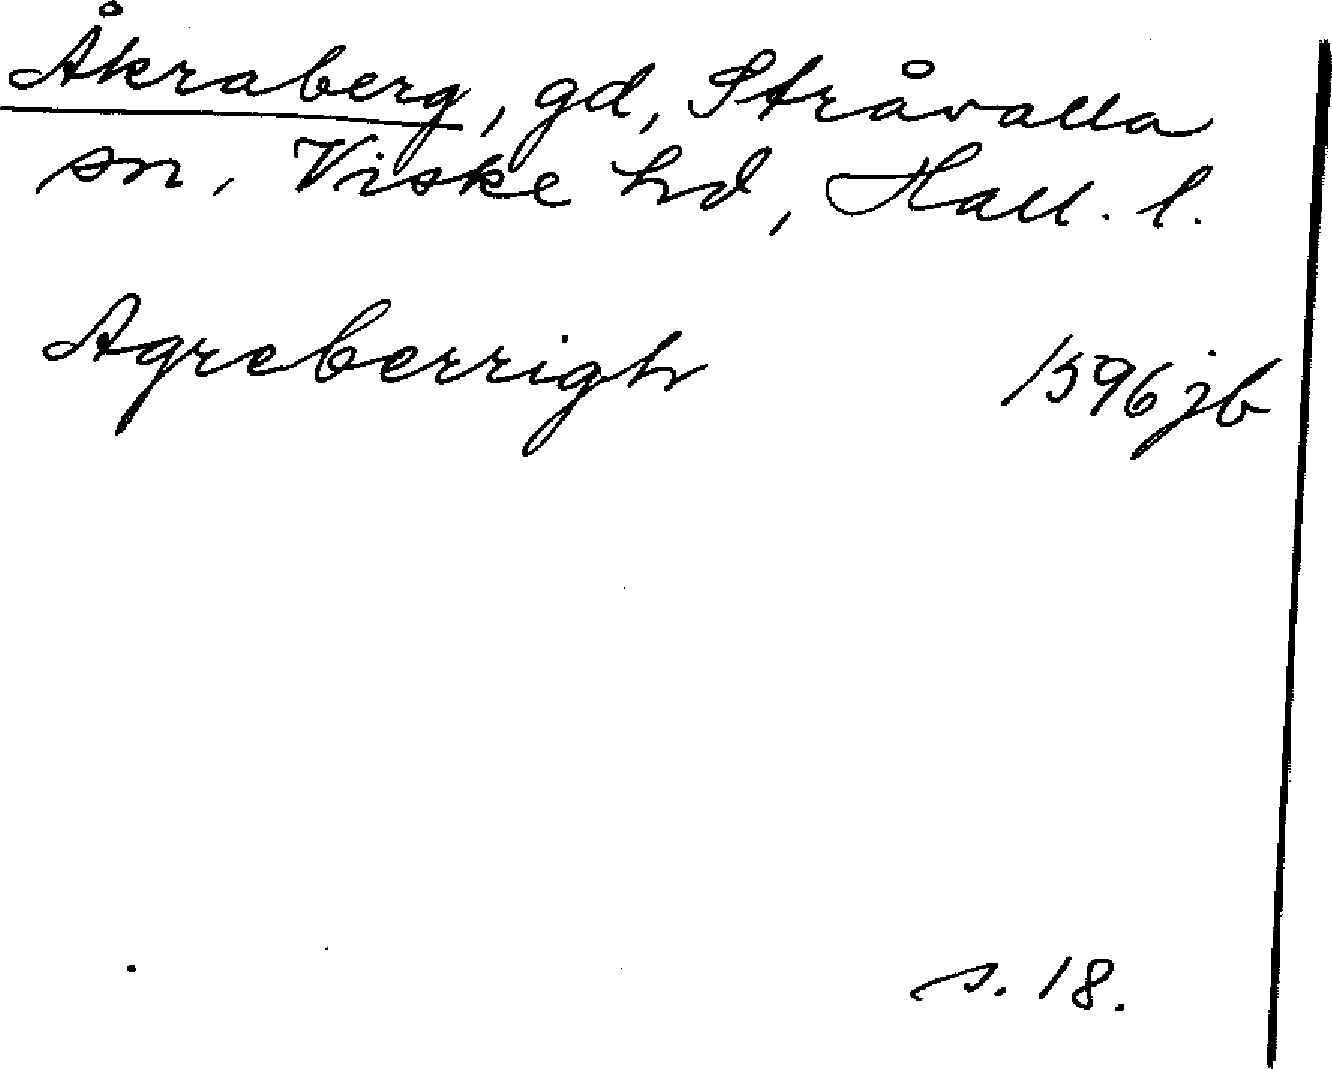 Åkraberg, gd, Stråvalla
sn, Viske hd, Hall. l.
Agreberrigh 1596 jb
s. 18.